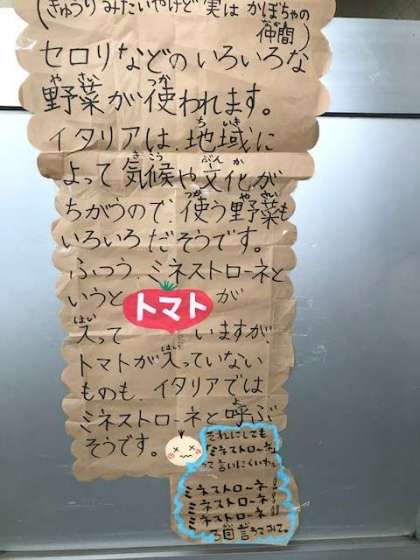 (きゅうりみたいやけど実はかぼちゃの
仲間)
セロリなどのいろいろな
野菜が使われます。
イタリアは、地域に
よって気候や文化が
ちがうので、使う野菜も
いろいろだそうです。
ふつう、ミネストローネと
いうとトマトが
入って いますが、
トマトが入っていない
ものも、イタリアでは
ミネストローネと呼ぶ
そうです。
それにしても
「ミネストローネ」
って言いにくいわぁ
ミネストローネ!
ミネストローネ!
ミネストローネ!
3回言うてみて。